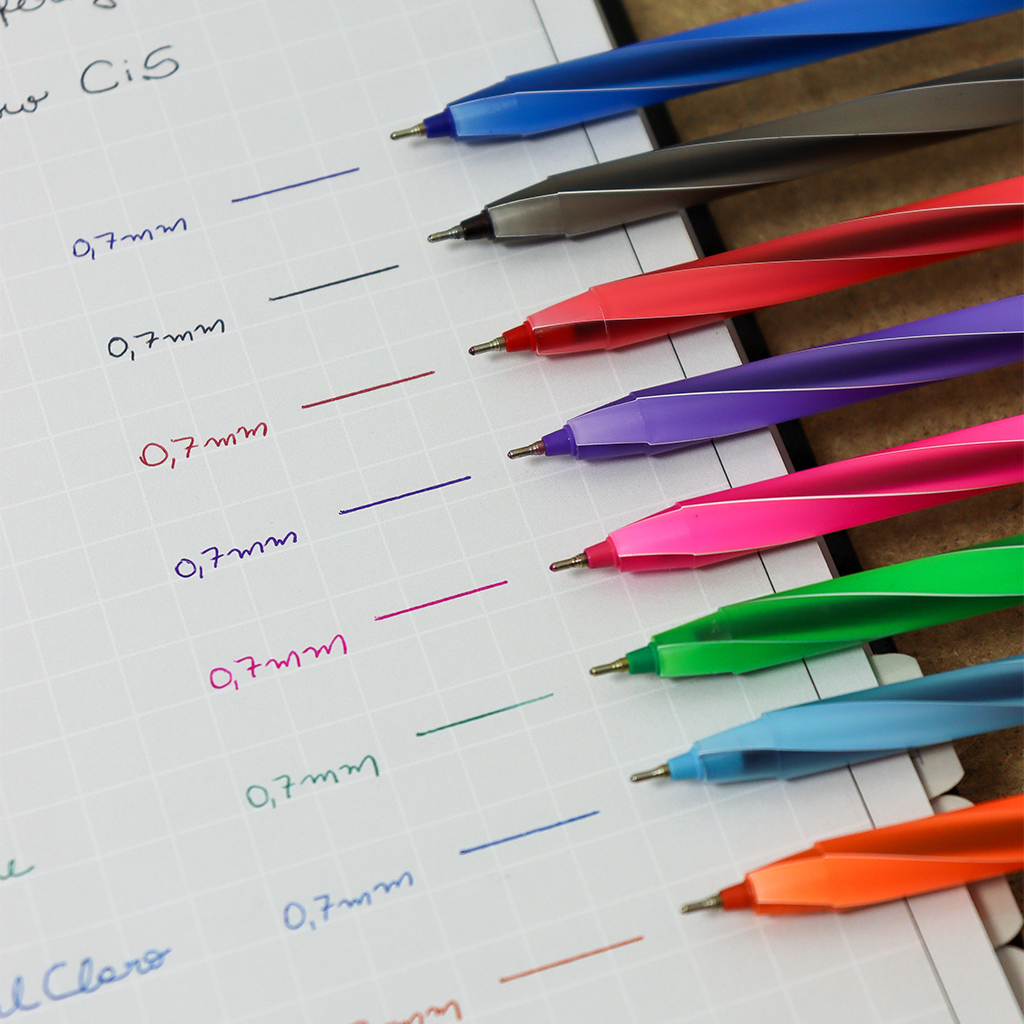 CiS
0,7mm
0,7mm
0,7mm
0,7mm
0,7mm
0,7mm
0,7mm
Claro